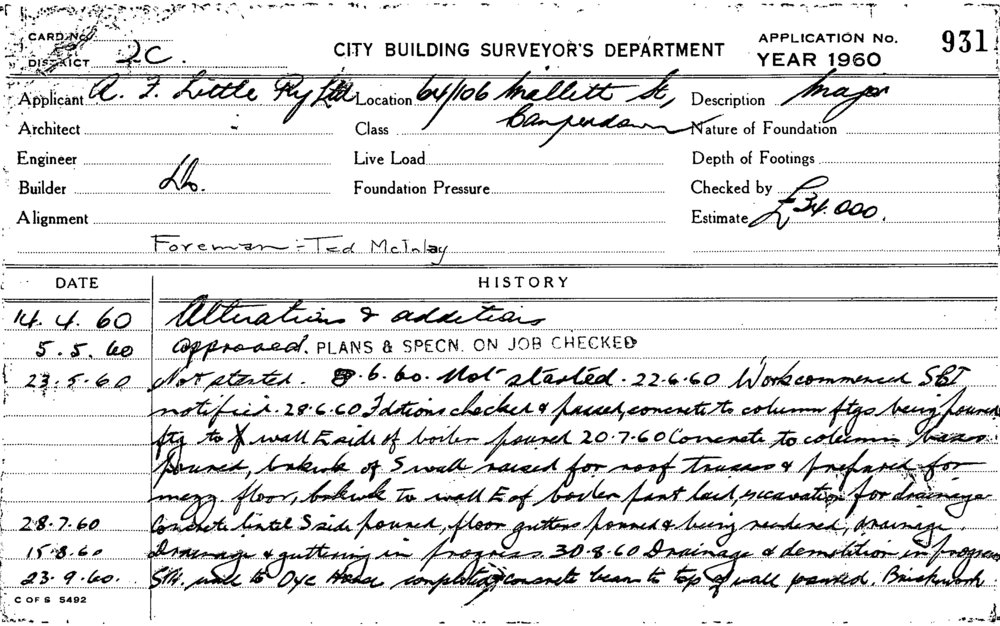 CARD No.
DISTRICT 2C.
CITY BUILDING SURVEYOR'S DEPARTMENT
APPLICATION No. 931
YEAR 1960
Applicant A. F. Little Pty Ltd Location 64/106 Mallett St, Description Major
Architect Class Camperdown Nature of Foundation
Engineer Live Load Depth of Footings
Builder Do. Foundation Pressure Checked by
Alignment Estimate £34.000.
Foreman:- Ted McInlay
DATE HISTORY
14.4.60 Alterations & additions
5.5.60 approved. PLANS & SPECN. ON JOB CHECKED
23.5.60 Not started. 8.6.60. Not started. 22.6.60 Work commenced
notified. 28.6.60 Fdtions checked & passed, concrete to column ftgs being poured
ftg to wall E side of boiler poured 20.7.60 Concrete to column bases
poured, bekwk of S wall raised for roof trusses & prepared for
mezz floor, bekwk to wall E of boiler part laid, excavation for drainage
28.7.60 Concrete lintel S side poured, floor gutters poured & being rendered, drainage.
15.8.60 Drainage & guttering in progress. 30.8.60 Drainage & demolition in progress
23.9.60. wall to Dye House completed, concrete beam to top of wall poured. Brickwork
C OF S 5492